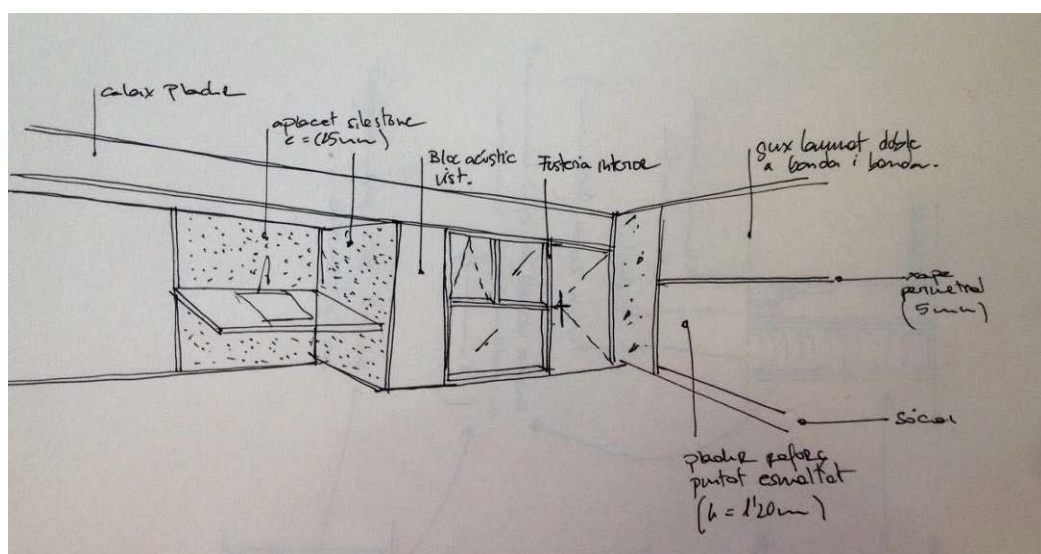 calaix Pladur
aplacat silestone
e = (15mm)
Bloc acústic
vist.
Fusteria interior
guix laminat doble
a banda i banda.
xapa
perimetral
(5mm)
Sócol
pladur reforç
pintat esmaltat
(h = 1'20m)